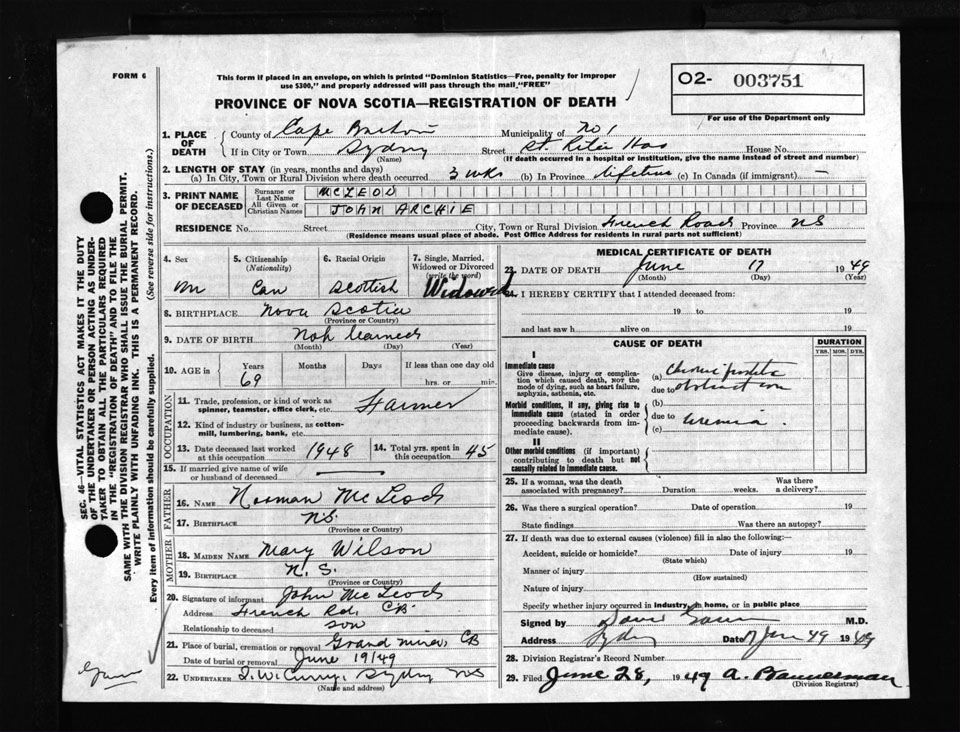 FORM 6
This form if placed in an envelope, on which is printed "Dominion Statistics—Free, penalty for improper
use $300," and properly addressed will pass through the mail "FREE"
O2- 003751
For use of the Department only
PROVINCE OF NOVA SCOTIA—REGISTRATION OF DEATH
1. PLACE OF DEATH
County of Cape Breton Municipality of No 1
If in City or Town Sydney Street St. Rita Hos House No.
(Name) (If death occurred in a hospital or institution, give the name instead of street and number)
2. LENGTH OF STAY (in years, months and days)
(a) In City, Town or Rural Division where death occurred 3 wks (b) In Province lifetime (c) In Canada (if immigrant) —
3. PRINT NAME OF DECEASED
Surname or Last Name MCLEOD
All Given or Christian Names JOHN ARCHIE
RESIDENCE No. Street City, Town or Rural Division French Road Province NS
(Residence means usual place of abode. Post Office Address for residents in rural parts not sufficient)
4. Sex M
5. Citizenship (Nationality) Can
6. Racial Origin Scottish
7. Single, Married, Widowed or Divorced (write the word) Widowed
8. BIRTHPLACE Nova Scotia
(Province or Country)
9. DATE OF BIRTH Not learned
(Month) (Day) (Year)
10. AGE in Years 69 Months Days If less than one day old
hrs. or min.
OCCUPATION
11. Trade, profession, or kind of work as
spinner, teamster, office clerk, etc. Farmer
12. Kind of industry or business, as cotten-
mill, lumbering, bank, etc.
13. Date deceased last worked
at this occupation 1948
14. Total yrs. spent in
this occupation 45
15. If married give name of wife
or husband of deceased —
FATHER
16. NAME Norman McLeod
17. BIRTHPLACE N.S.
(Province or Country)
MOTHER
18. MAIDEN NAME Mary Wilson
19. BIRTHPLACE N. S.
(Province or Country)
20. Signature of informant John McLeod
Address French Rd. CB
Relationship to deceased son
21. Place of burial, cremation or removal Grand Mira, CB
Date of burial or removal June 19/49
22. UNDERTAKER Sydney NS
(Name and address)
MEDICAL CERTIFICATE OF DEATH
23. DATE OF DEATH June 17 1949
(Month) (Day) (Year)
24. I HEREBY CERTIFY that I attended deceased from:
19 to 19
and last saw h alive on 19
CAUSE OF DEATH
DURATION
YRS. MOS. DYS.
I
Immediate cause
Give disease, injury or compli-
cation which caused death, NOT the
mode of dying, such as heart failure,
asphyxia, asthenia, etc.
(a) Chronic prostatic
due to obstruction
Morbid conditions, if any, giving rise to
immediate cause (stated in order
proceeding backwards from im-
mediate cause).
(b)
due to
(c) uremia.
II
Other morbid conditions (if important)
contributing to death but not
causally related to immediate cause.
25. If a woman, was the death
associated with pregnancy? Duration weeks. Was there
a delivery?
26. Was there a surgical operation? Date of operation 19
State findings Was there an autopsy?
27. If death was due to external causes (violence) fill in also the following:—
Accident, suicide or homicide? Date of injury 19
(State which)
Manner of injury
(How sustained)
Nature of injury
Specify whether injury occurred in industry, in home, or in public place
Signed by David M.D.
Address Sydney Date 49 1949
28. Division Registrar's Record Number
29. Filed June 28, 1949 A. Bannerman
(Division Registrar)
SEC. 46—VITAL STATISTICS ACT MAKES IT THE DUTY
OF THE UNDERTAKER OR PERSON ACTING AS UNDER-
TAKER TO OBTAIN ALL THE PARTICULARS REQUIRED
IN THE "REGISTRATION OF DEATH" AND TO FILE THE
SAME WITH THE DIVISION REGISTRAR WHO SHALL ISSUE THE BURIAL PERMIT.
WRITE PLAINLY WITH UNFADING INK. THIS IS A PERMANENT RECORD.
Every item of information should be carefully supplied. (See reverse side for instructions.)